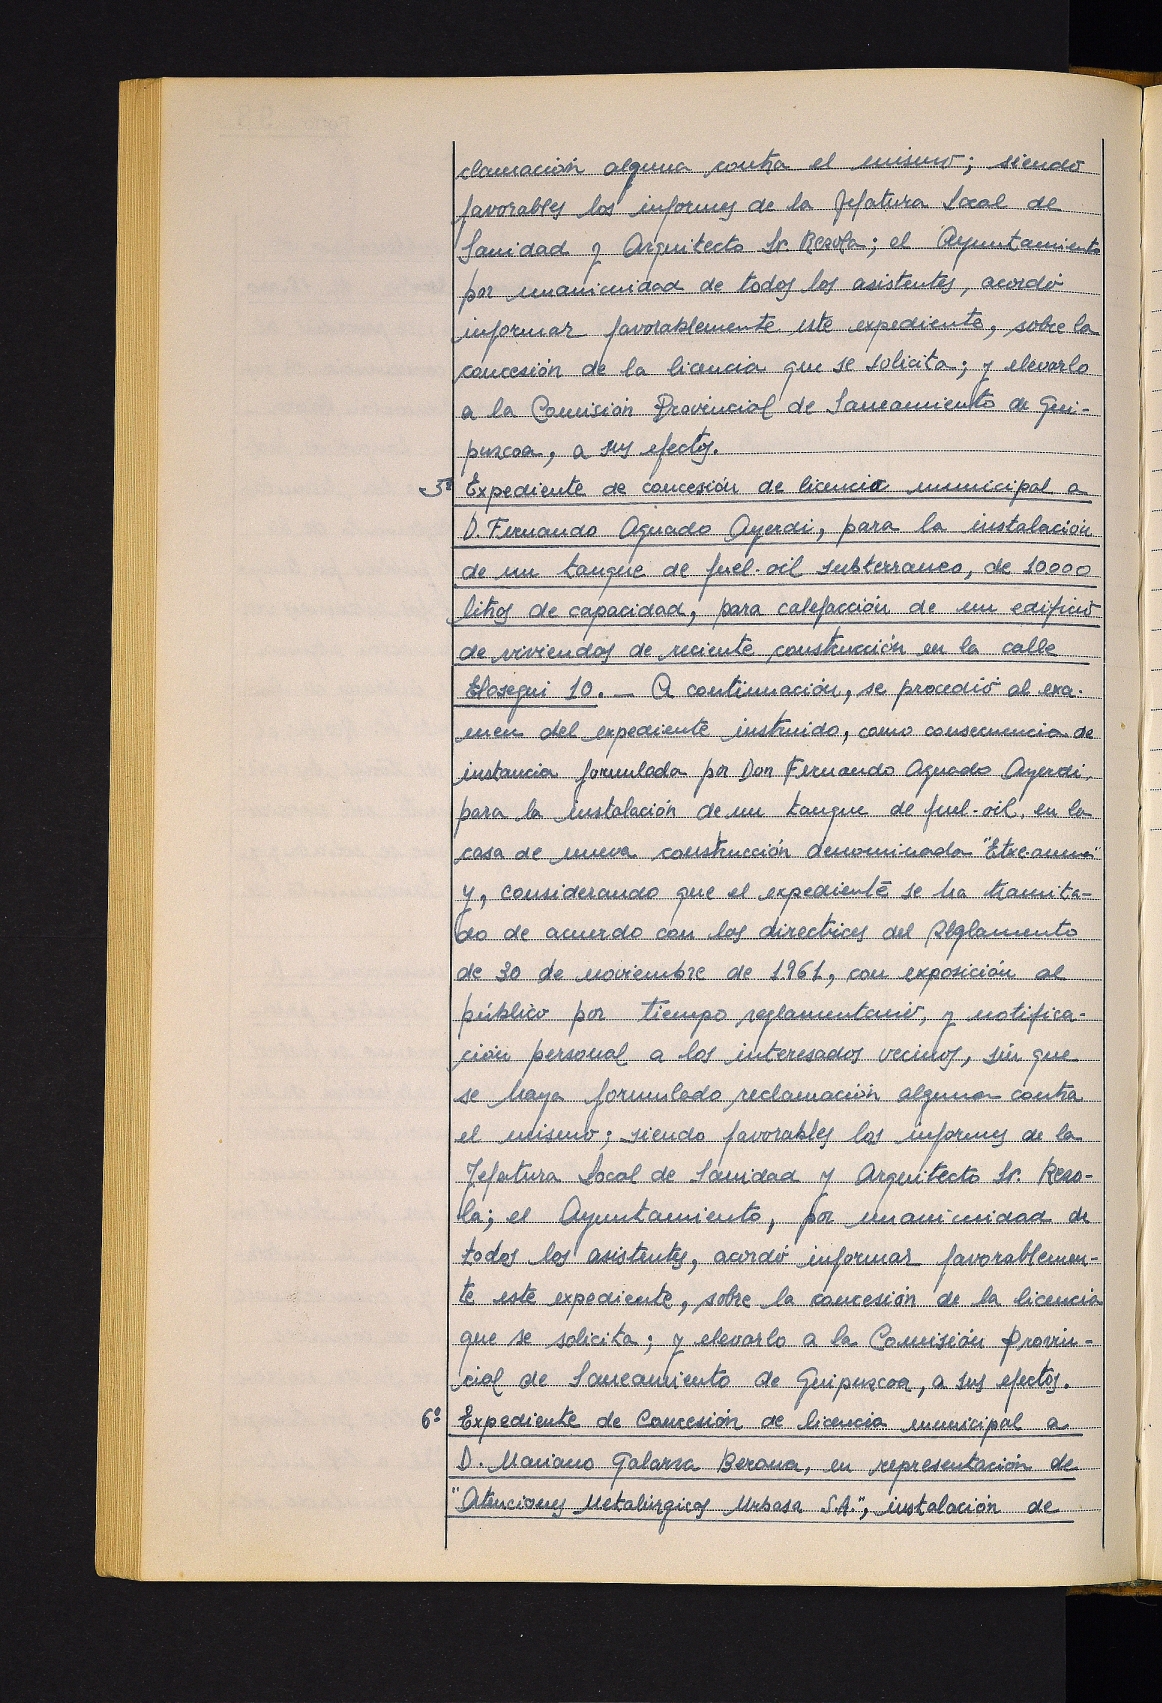 clamación alguna contra el mismo; siendo
favorables los informes de la Jefatura Local de
Sanidad y Arquitecto Sr. Rezola; el Ayuntamiento
por unanimidad de todos los asistentes, acordó
informar favorablemente este expediente, sobre la
concesión de la licencia que se solicita; y elevarlo
a la Comisión Provincial de Saneamiento de Gui-
puzcoa, a sus efectos.
5º Expediente de concesión de licencia municipal a
D. Fernando Aguado Ayerdi, para la instalación
de un tanque de fuel-oil subterraneo, de 10000
litros de capacidad, para calefacción de un edificio
de viviendas de reciente construcción en la calle
Elosegui 10. — A continuación, se procedió al exa-
men del expediente instruido, como consecuencia de
instancia formulada por Don Fernando Aguado Ayerdi,
para la instalación de un tanque de fuel-oil, en la
casa de nueva construcción denominada
y, considerando que el expediente se ha tramita-
do de acuerdo con las directrices del Reglamento
de 30 de noviembre de 1.961, con exposición al
público por tiempo reglamentario, y notifica-
ción personal a los interesados vecinos, sin que
se haya formulado reclamación alguna contra
el mismo; siendo favorables los informes de la
Jefatura Local de Sanidad y Arquitecto Sr. Rezo-
la; el Ayuntamiento, por unanimidad de
todos los asistentes, acordó informar favorablemen-
te este expediente, sobre la concesión de la licencia
que se solicita; y elevarlo a la Comisión Provin-
cial de Saneamiento de Guipuzcoa, a sus efectos.
6º Expediente de Concesión de licencia municipal a
D. Mariano Galarza Berana, en representación de
"Atenciones Metalúrgicas Urbasa S.A.", instalación de